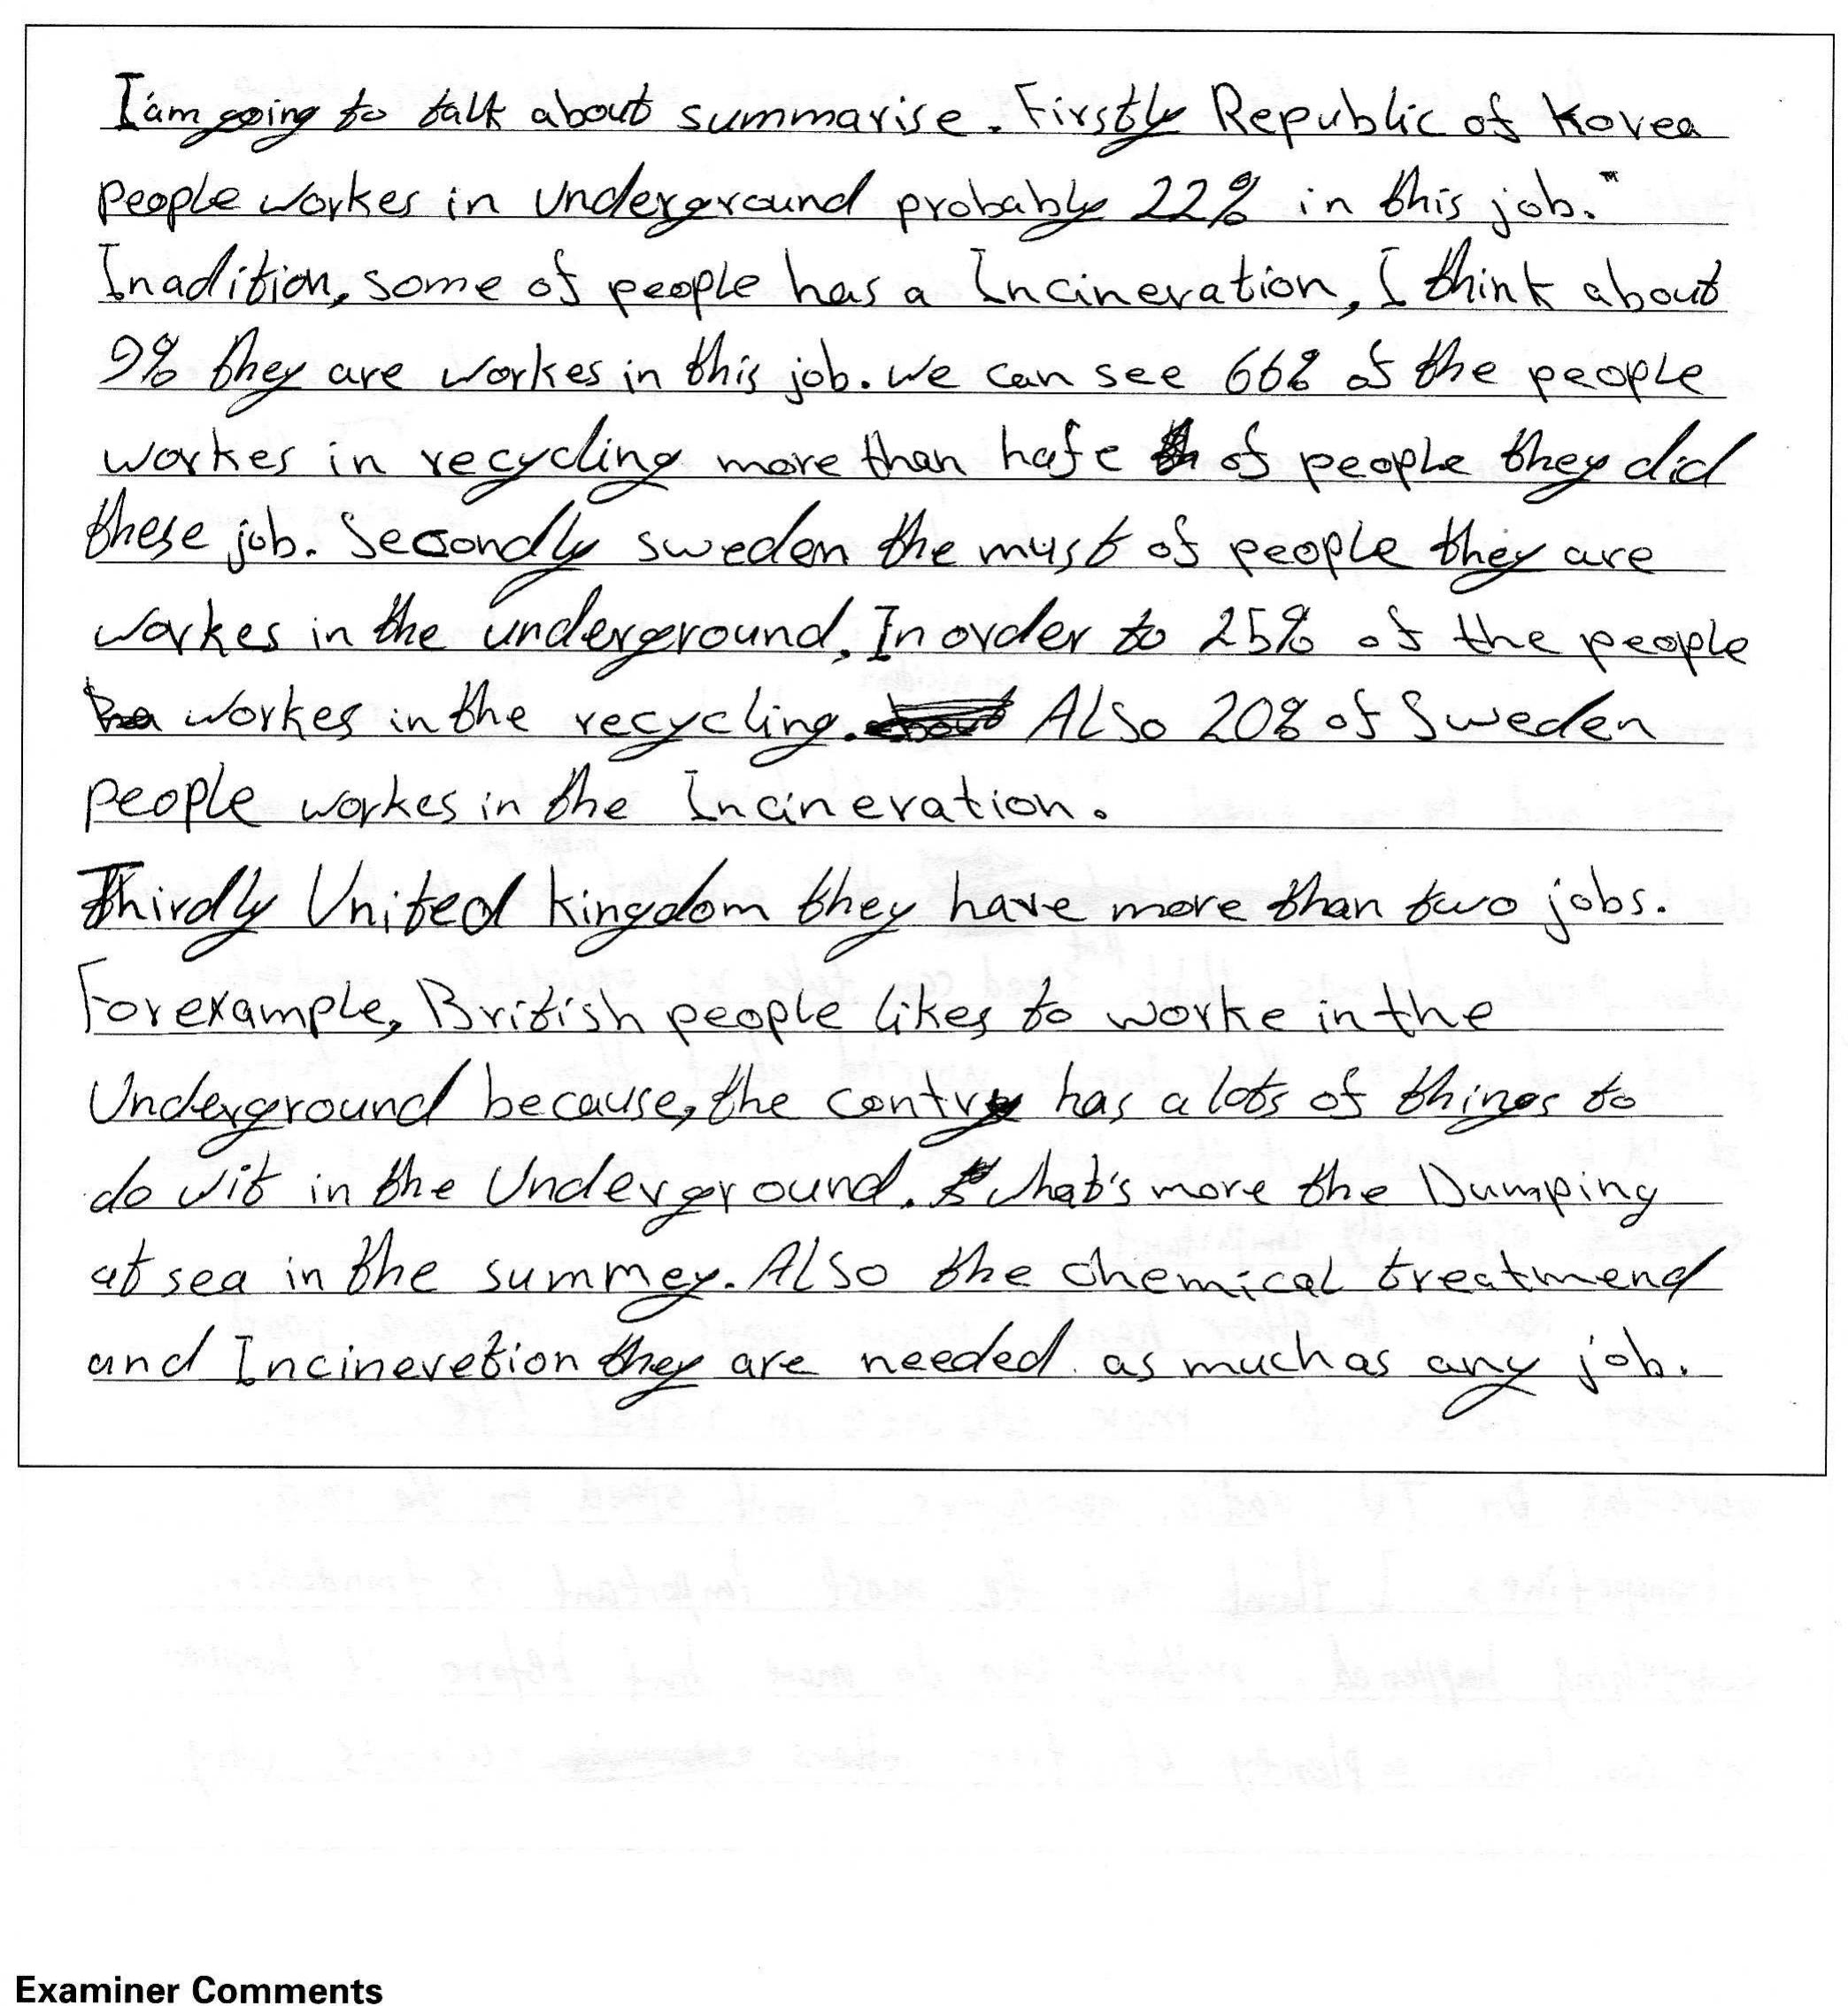 I'am going to talk about summarise. Firstly Republic of Korea
people workes in underground probably 22% in this job."
Inadition, some of people has a Incineration, I think about
9% they are workes in this job. we can see 66% of the people
workes in recycling more than hafe of people they did
these job. Secondly sweden the must of people they are
workes in the underground, In order to 25% of the people
workes in the recycling. Also 20% of Sweden
people workes in the Incineration.
Thirdly United kingdom they have more than two jobs.
For example, British people likes to worke in the
Underground because, the contry has a lots of things to
do wit in the Underground. what's more the Dumping
at sea in the summey. Also the chemical treatmend
and Incineretion they are needed as much as any job.
Examiner Comments